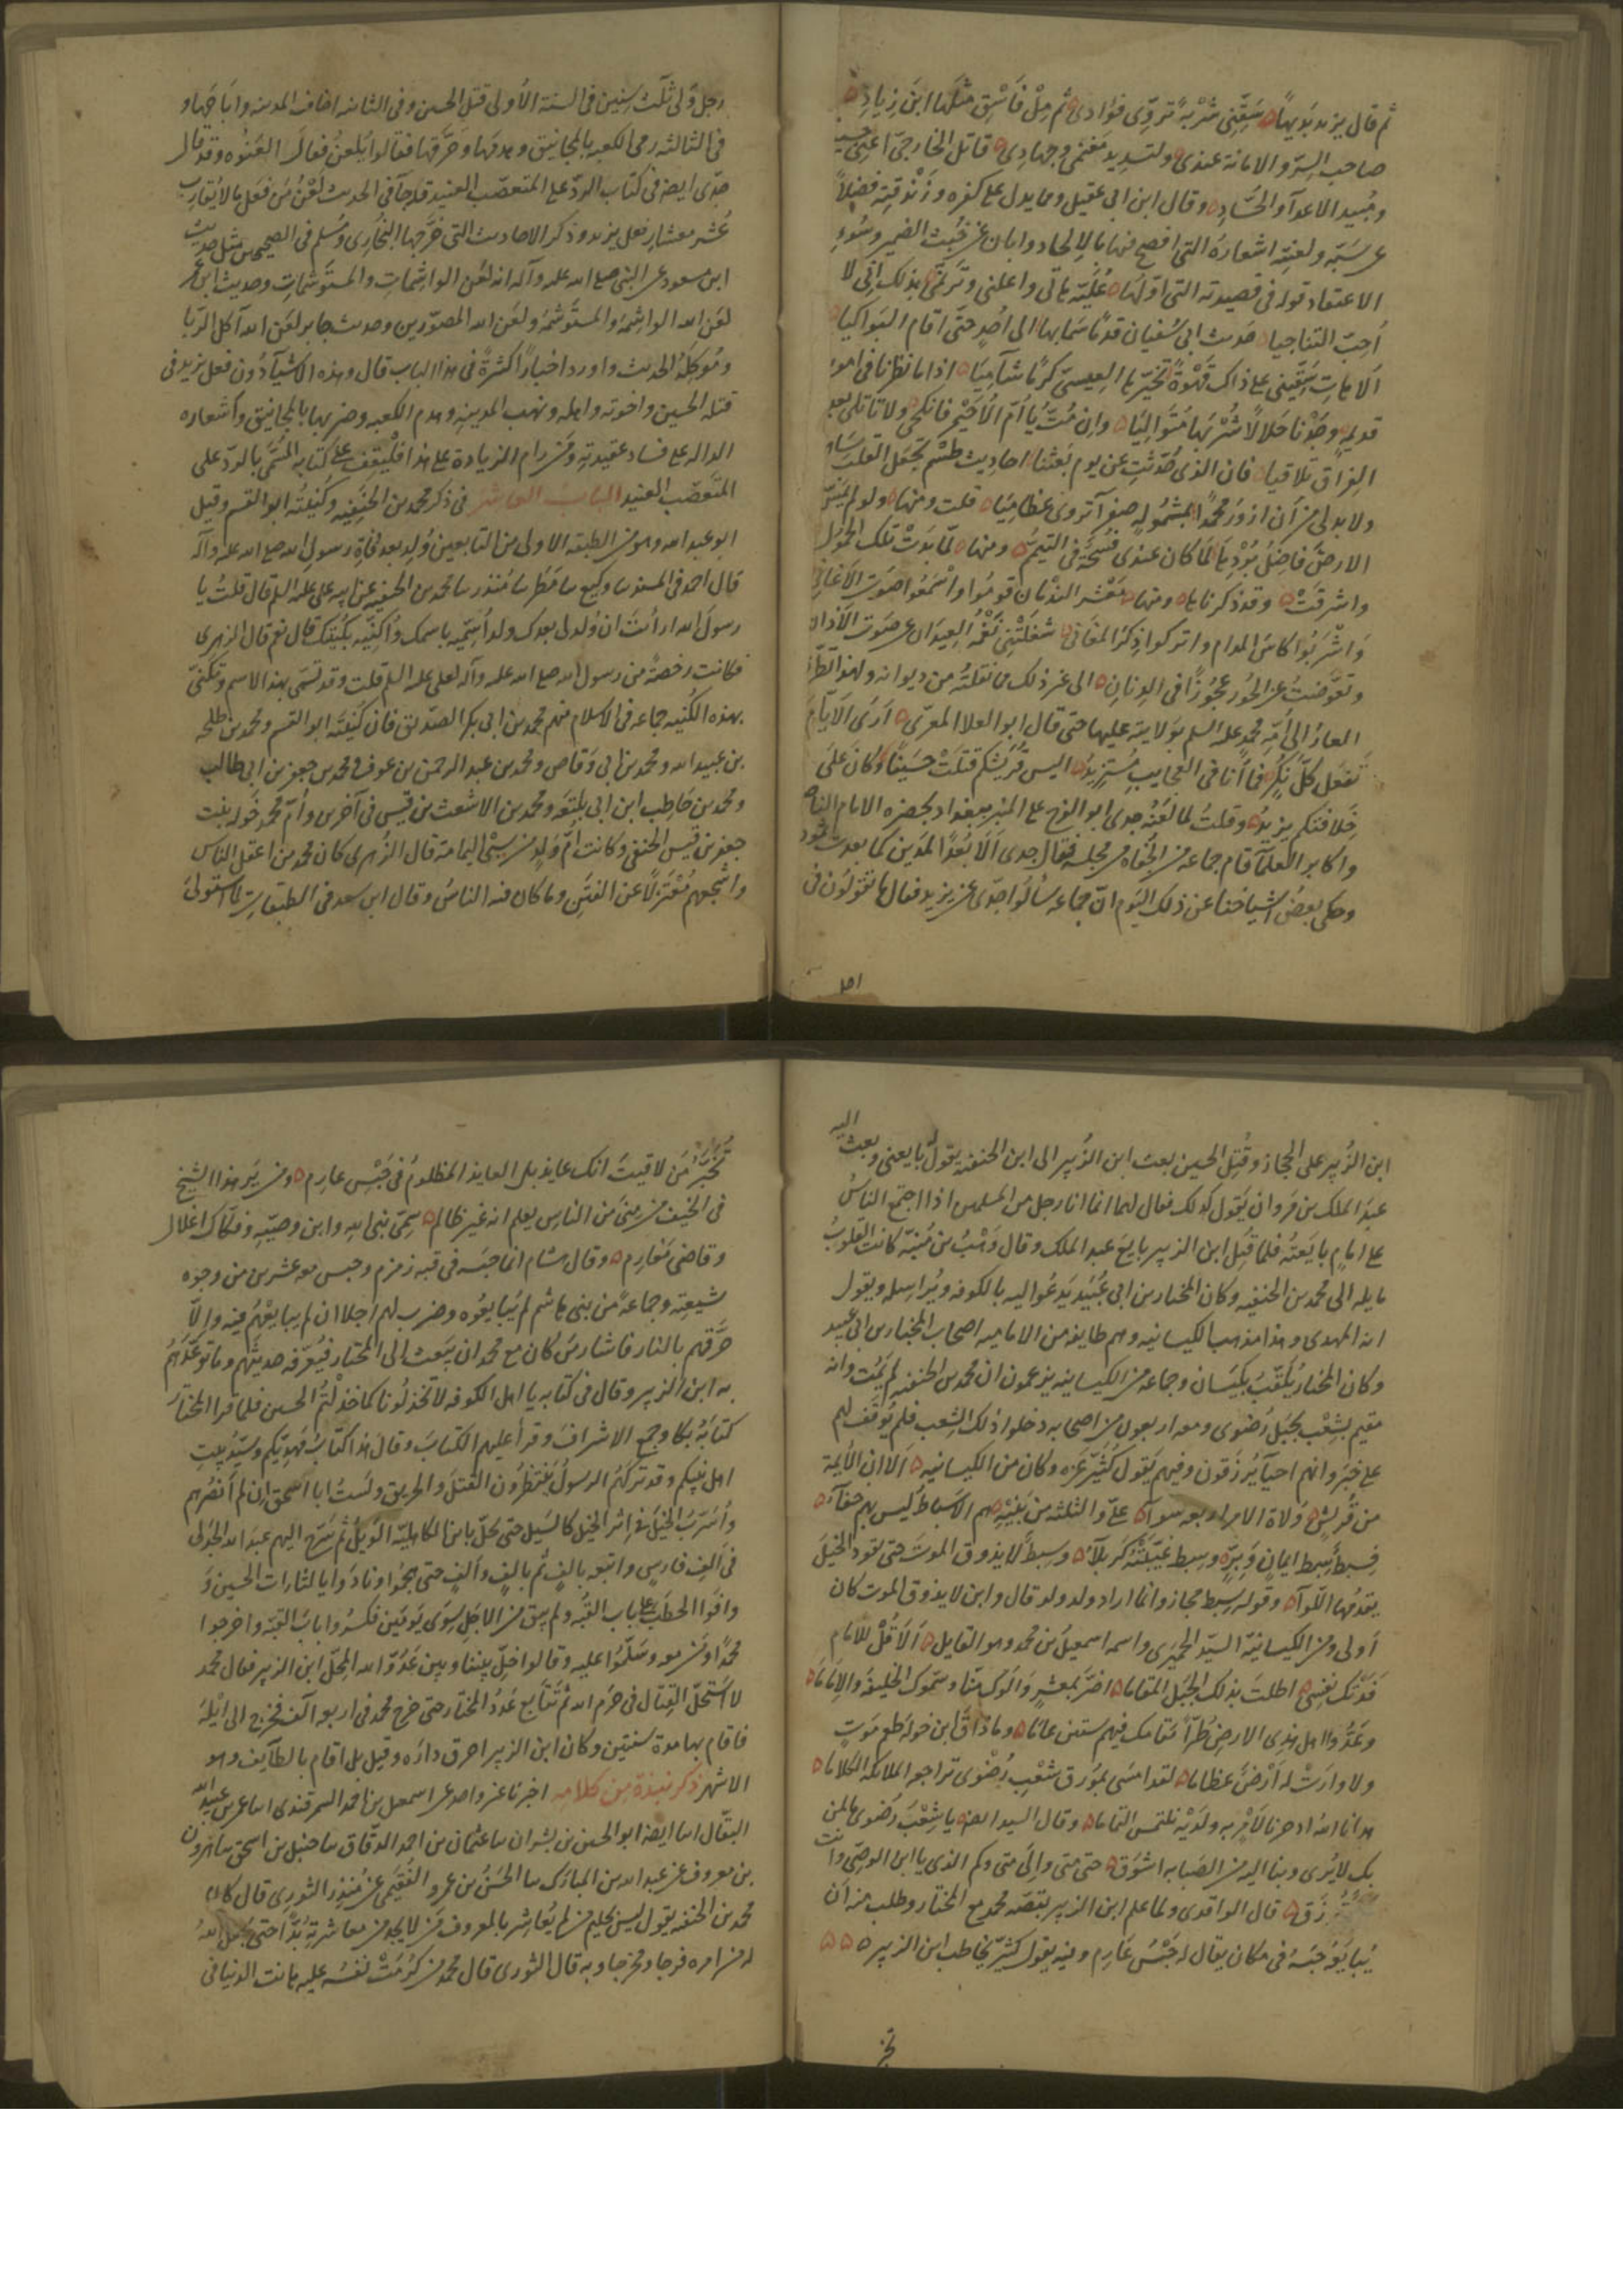 ثم قال يزيد بديهاً سَقِّنِى شُرْبَةً تروّى فؤادى ثم مِلْ فَاسْقِ مثلها ابن زِيادِ
صاحب السِّرّ والامانة عندى ولتسديد مَغنمى وجهادى قاتل الخارجىّ اعنى حسين
ومُبيد الاعدآء والحُسّادِ وقال ابن ابى عقيل ومما يدل على كفره وزَنْدقته فضلاً
عن سَبّه ولعنِه اشعارهُ التى افصح فيها بالإلحاد وابان عن خُبث الضمير وسُوء
الاعتقاد قوله فى قصيدته التى اوّلها عُلَيّه هاتى واعلنى وتَرنّمى بذلك انى لا
أُحِبّ التناجيا حديث ابى سُفيان قدمًا سَمَا بها الى اُحُدٍ حتى اقام البَواكيا
اَلا هاتِ سَقّينى على ذاك قَهْوَةً تخيّرها العِيسىّ كرمًا شآميَا اذا ما نظرنا فى امور
قديمةٍ وجَدْنا حَلالًا شُرْبَها مُتَوالِيَا وان مُتّ يا اُمّ الاُحَيْمِر فانكحى ولا تأملى بعد
الفِراق تَلاقيا فان الذى حُدِّثتِ عن يوم بَعثنا احاديث طَسْم تجعَل القلب ساهيا
ولا بد لى من اَن ازورَ محمدًا بمشمُولةٍ صفرآء تروى عظاميَا قلت ومنها ولو لم يمسّ
الارضَ فاضِلُ بُرْدِهَا لَمَا كان عندى مَسْحَةٌ فى التيمّم ومنها لمّا بَدتْ تلك الحُمول
واشرقَتْ وقد ذكرناها ومنها مَعْشر النَدْمان قوموا واسْمَعُوا صَوتَ الاَغانى
وَاشْرَبُوا كاسَ المدام واتركوا ذِكرَ المغانى شغلَتْنِى نَغْمَةُ العِيدان عن صَوت الاَذان
وتعوّضتُ عن الحُور عجُوزًا فى الدِنانِ الى غير ذلك مما نقلتُه من ديوانه ولهذا تطرّق
العارُ الى اُمّةِ محمد عليه السلم بوَلايته عليها حتى قال ابو العلا المعرّى اَرَى الاَيّامَ
تَفعَل كُلَّ نُكرٍ فما اَنا فى العجايبِ مُستزيدُ اليس قُرَيشكم قتلَتْ حُسَينًا وكان عَلى
خِلافتكم يزيدُ وقلتُ لما لعَنَه جدى ابو الفرج على المنبر ببغداد بحضرة الامام الناصر
واكابر العلمآء قام جماعة من الجُفاه من مجلسه فقال جدى اَلا بُعْدًا لمَدين كما بعدت ثمود
وحكى بعض اشياخنا عن ذلك اليَوم انّ جماعة سألوا جدّى عن يزيد فقال ما تقولون فى
رجل وُلّى ثلث سنين فى السنة الاُولى قتل الحسين وفى الثانية اخاف المدينة واباحَها و
فى الثالثة رمى الكعبة بالمجانيق وهدَمها وحَرّقها فقالوا يُلعن فقال العَنُوه وقد قال
جدّى ايضه فى كتاب الردّ على المتعصّب العنيد قد جآء فى الحديث لَعْنُ مَن فعَل ما لا يُقارب
عُشر معشارِ فعل يزيد وذكر الاحاديث التى خرّجها البُخارى ومُسلم فى الصحيحين مثل حديث
ابن مسعود عن النبى صلى الله عليه وآله انه لعَن الواشِماتِ والمستَوشماتِ وحديث ابن عمر
لعَن الله الواشمةَ والمستَوشمةَ ولعَن الله المصوّرين وحديث جابر لعَن الله آكل الرّبا
ومُوكِلَهُ الحديث واورد اخبارًا كثيرةً فى هذا الباب قال وهذه الاشيآء دُون فعل يزيد فى
قتله الحسين واخوته واهله ونهب المدينة وهدم الكعبة وضربها بالمجانيق واشعاره
الداله على فساد عقيدته ومَن رام الزيادة على هذا فليقف عَلى كتابه المسَمَّى بالردّ على
المتَعصّب العنيد البابُ العاشر فى ذكر محمد بن الحنَفِيه وكُنيتُه ابو القسم وقيل
ابو عبد الله وهو من الطبقة الاولى من التابعين وُلِد بعد وفاةِ رسولِ الله صلى الله عليه وآله
قال احمد فى المسند نا وكيع نا مَطَر نا مُنذر نا محمد بن الحنفيه عن ابيه على عليه السلم قال قلتُ يا
رسولَ الله اراَيتَ ان وُلد لى بعدك ولد اُسَمّيه باسمك واُكنّيه بكُنيتك قال نعم قال الزهرى
فكانت رخصةً من رسول الله صلى الله عليه وآله لعلى عليه السلم قلت وقد تسَمّى بهذا الاسم وتكنّى
بهذه الكُنيه جماعه فى الاسلام منهم محمد بن ابى بكر الصدّيق فان كُنيتَه ابو القسم ومحمد بن طلحه
بن عبيد الله ومحمد بن ابى وَقاص ومحمد بن عبد الرحمن بن عوف ومحمد بن جعفر بن ابى طالب
ومحمد بن حَاطِب ابن ابى بلتَعَه ومحمد بن الاشعث بن قيس فى آخرين واُمّ محمد خَوله بنت
جعفر بن قيس الحنفى وكانت اُمّ وَلِد من سَبْى اليمامة قال الزُهرى كان محمد من اعقل الناس
واشجعهم مُعْتَزلًا عن الفتَنِ وما كان فيه الناسُ وقال ابن سعد فى الطبقات لما استَولَى
اهل
ابن الزُبير على الحجاز وقُتِل الحسين بعث ابن الزُبير الى ابن الحنفية يقول له بايعنى وبعث اليه
عبدُ الملك بن مَروان يَقول كذلك فقال لهما انما انا رجل من المسلمين اذا اجتمع الناسُ
على امامٍ بايَعتُهُ فلما قُتِل ابن الزبير بايعَ عبد الملك وقال وَهْبُ بن مُنبّه كانت القلوبُ
مايله الى محمد بن الحنفيه وكان المختار بن ابى عُبَيْد يَدعُوا اليه بالكوفه ويُراسِله ويقول
انه المهدى وهذا مذهب الكيسانيه وهم طايفه من الاماميه اصحاب المختار بن ابى عبيد
وكان المختار يُلَقّب بكَيسَان وجماعه من الكيسانيه يزعمون ان محمد بن الحنفيه لم يَمُت وانه
مقيم بشِعْب بجبَل رَضوى ومعه اربعون من اصحابه دخلوا ذلك الشِعب فلم يُوقَف لهم
على خبَرٍ وانهم احيآء يُرزَقون وفيهم يَقول كُثَيّر عَزّه وكان من الكيسانيه اَلا ان الاَئمة
من قُرَيشٍ وُلاةَ الامر اربعه سَوآءُ علىّ والثلثه من بَنِيْهِ هم الاَسباط لَيس بهم خفآءُ
فسِبطٌ سِبط ايمانٍ وَبِرٍّ وسِبط غَيّبَتْهُ كَرْبَلآءُ وسِبطٌ لا يذوق الموتَ حتى يقود الخيلَ
يقدمُها اللّوآءُ وقوله سِبط مجاز وانما اراد ولد ولد قال وابن لا يذوق الموت كان
اَولى ومن الكيسانيّة السيّد الحِميَرى واسمه اسمعيلُ بن محمد وهو القايل اَلَا قُلْ للامام
فَدَتكَ نفسى اطلتَ بذلك الجبَل المقامَا اضرّ بمعشرٍ وَالَوك منّا وسَمّوك الخليفةَ والاِمَامَا
وعَدُّوا اهل هذى الارض طُرّاً مقامك فيهم ستين عامَا وما ذاقَ ابن خولة طعمَ موتٍ
ولا وارَتْ له اَرْضٌ عظاما لقد امسَى بمُورق شعْبِ رَضْوَى تراجعه الملايكه الكلاما
هدانا الله اذ حرنا لاَمْرٍ به ولَدَيْه نلتمس التماما وقال السيد ايضه يا شعْبَ رَضوى ما لمن
بك لايُرى وبنا اليه من الصَبابه اَشْوَقُ حتى متى والى متى وكم الذى يا ابن الوصىّ وانت
تُرزَق قال الواقدى ولما علم ابن الزبير بقصّة محمد مع المختار وطلب منه اَن
يُبايعَه حبَسَهُ فى مكان يقال له حَبْسُ عَارِم وفيه يقول كثيّر يخاطب ابن الزبير
تخبّر
تُخَبِّرُ مَن لاقيتَ انك عايذ بل العايذ المظلومُ فى حَبْسِ عارِم ومن يَر هذا الشيخ
فى الخيف من مِنىً مَن الناسِ يعلم انه غير ظالم سَمِىّ نبى الله وابن وصيّهِ وفكّاك اغلال
وقاضى مَغارِم وقال هشام انما حبَسه فى قبه زمزم وحبس معه عشرين من وجوه
شيعتِه وجماعةً من بنى هاشم لم يُبايعُوه وضرب لهم اجلا ان لم يبايعُهُم فيه والّا
حَرّقهم بالنار فاشار مَن كان مع محمد ان يَبعث الى المختار فيُعرّفه حديثَهم وما توعّدَهُم
به ابن الزبير وقال فى كتابه يا اهل الكوفه لا تخذلُونا كما خذلتُم الحسين فلما قرا المختار
كتابَهُ بكا وجمع الاشرافَ وقرأ عليهم الكتابَ وقال هذا كتابُ مَهدِيّكم وسَيّد بيتِ
اهل نبيكم وقد تركهُم الرسولُ ينتظرُون القتلَ والحريق ولَستُ ابا اسحق ان لم اَنصُرهم
واُسَرّبُ الخيلَ فى اثر الخيل كالسَيل حتى يحلّ بابن الكاهليّه الوَيلُ ثم سَرّح اليهم عبد الله الجَدلى
فى اَلفِ فارسٍ واتبعه بالفٍ ثم بالفٍ واَلفٍ حتى هجمُوا ونادَوا يا لثارات الحسين وَ
وافَوا الحطَبَ على باب القُبّه ولم يبق من الاجَلِ سِوَى يَومَين فكسَرُوا بابَ القبّة واخرجوا
محمدًا ومَن معه وسَلّمُوا عليه وقالوا خلّ بيننا وبين عَدُوّ الله المِحَلّ ابن الزبير فقال محمد
لا اَستَحلّ القِتال فى حَرَم الله ثم تَتابع مَدَدُ المختار حتى خرج محمد فى اربعه آلاف فخرج الى اَيْلَةَ
فاقام بها مدة سنتين وكان ابن الزبير احرق دارَه وقيل بل اقام بالطآيف وهو
الاشهر ذكر نبذة من كلامه اخبرنا غير واحد عن اسمعيل بن احمد السمرقندى انبا عمر بن عبيد الله
البقّال انبا ايضه ابو الحسين بن بشران نا عثمان بن احمد الدقّاق نا حنبل بن اسحق نا هرون
بن معروف عن عبد الله بن المبارَك نا الحَسَنُ بن عمرو الفُقَيمى عن مُنذِر الثورى قال كان
محمد بن الحنفيه يقول ليس بحليم من لم يُعاشِر بالمعروف مَن لا يجد من معاشرته بُدًّا حتى يجعل الله
له من امره فرجا ومخرجا وبه قال الثورى قال محمد من كرُمَتْ نفسُه عليه هانت الدنيا فى